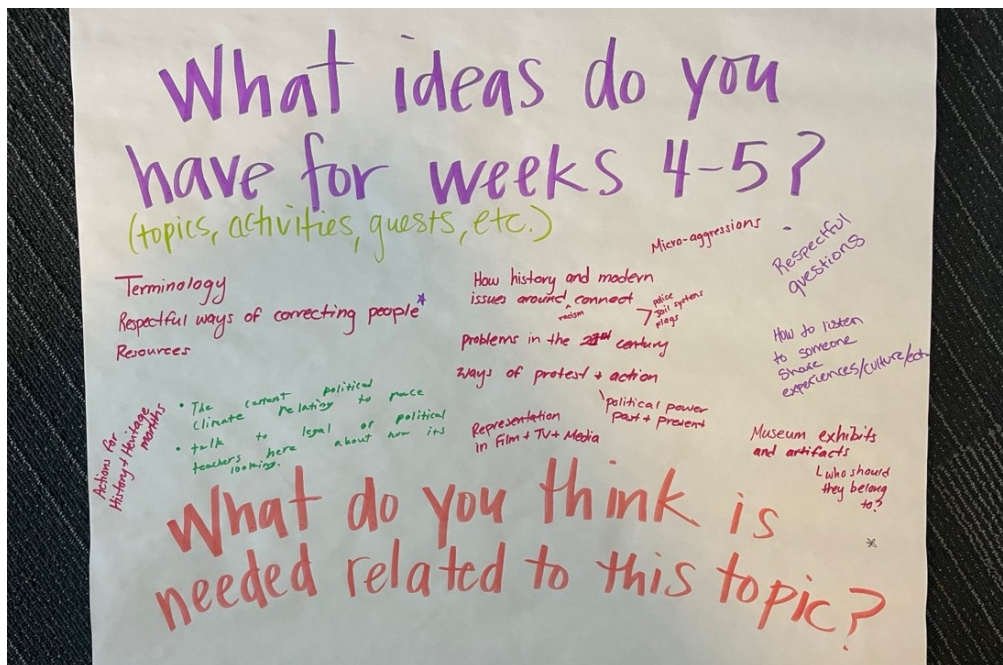 What ideas do you
have for weeks 4-5?
(topics, activities, guests, etc.)
Terminology
Respectful ways of correcting people*
Resources
• The current political
climate relating to race
• talk to legal or political
teachers here about how its
looking.
Actions for
History + Heritage
months
How history and modern
issues around racism connect
police
jail systems
flags
problems in the 21st century
ways of protest + action
political power
past + present
Representation
in Film + TV + Media
Micro-aggressions
Respectful
questions
How to listen
to someone
share
experiences/culture/ect
Museum exhibits
and artifacts
who should
they belong
to?
*
What do you think is
needed related to this topic?